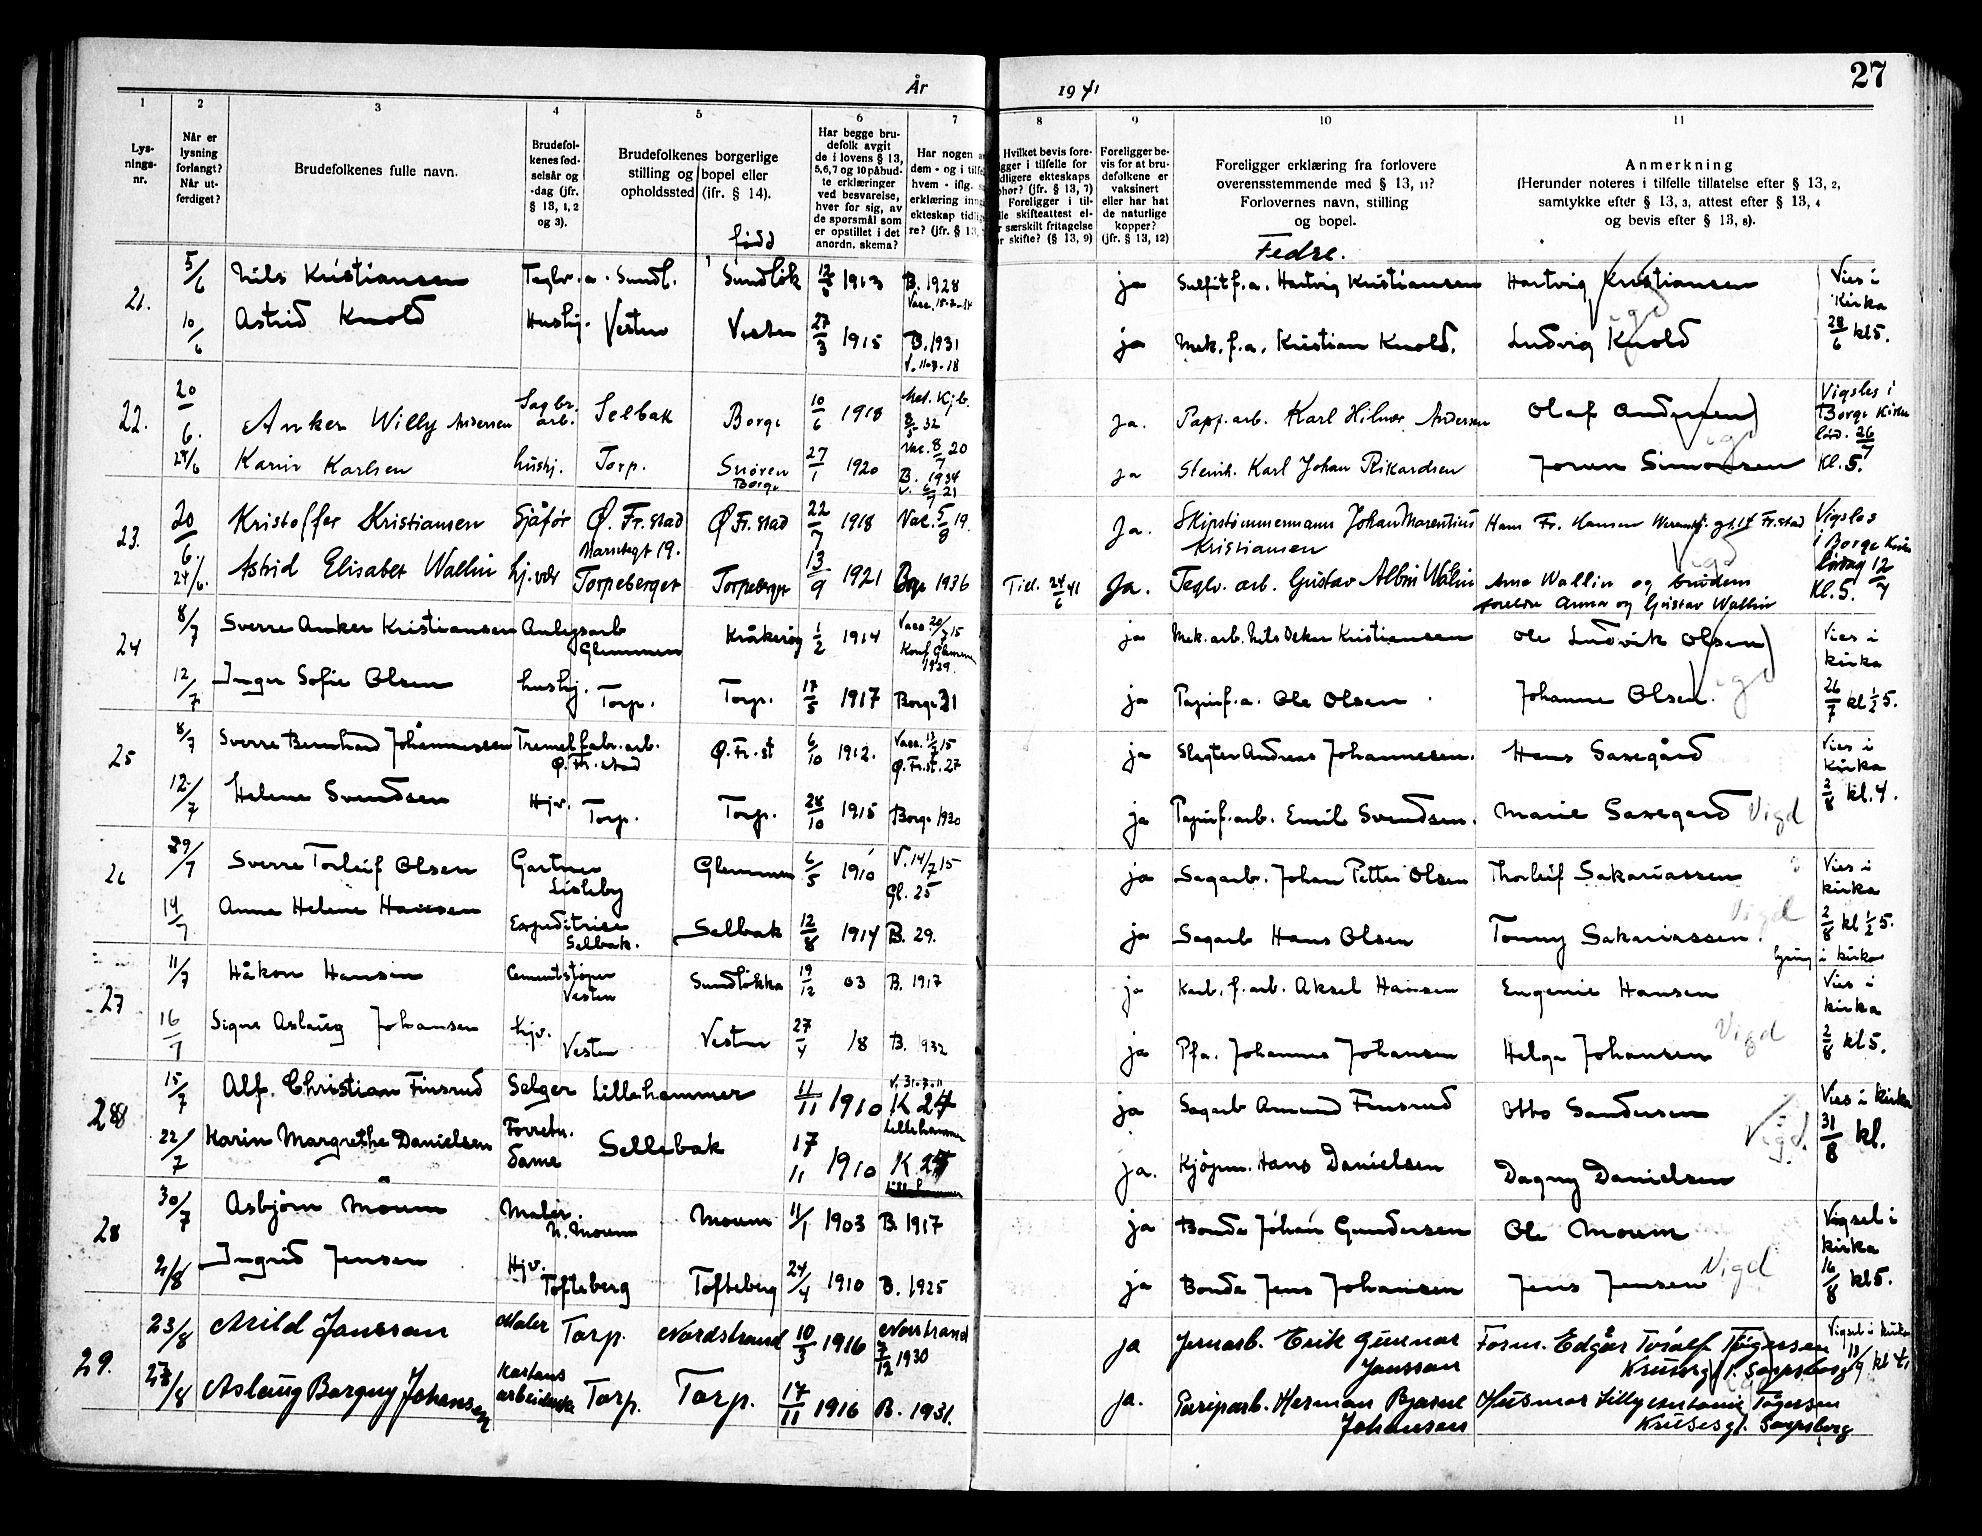 År 1941
27
1 2 3 4 5 6 7 8 9 10 11
Lys-
nings-
nr.
Når er
lysning
forlangt?
Når ut-
ferdiget?
Brudefolkenes fulle navn.
Brudefol-
kenes fød-
selsår og
-dag (jfr.
§ 13, 1, 2
og 3).
Brudefolkenes borgerlige
stilling og bopel eller
opholdssted (ifr. § 14).
født
Har begge bru-
defolk avgit
de i lovens § 13,
5,6,7 og 10 påbud-
te erklæringer
ved besvarelse,
hver for sig, av
de spørsmål som
er opstillet i det
anordn. skema?
Har nogen a
dem - og i tilfe
hvem - iflg.
erklæring inng
ekteskap tidlig
re? (jfr. § 13,
Hvilket bevis fore-
gger i tilfelle for
dligere ekteskaps
phør? (jfr. § 13, 7)
Foreligger i til-
lle skifteattest el-
r særskilt fritagelse
or skifte? (§ 13, 9)
Foreligger be-
vis for at bru-
defolkene er
vaksinert
eller har hat
de naturlige
kopper?
(jfr. § 13, 12)
Foreligger erklæring fra forlovere
overensstemmende med § 13, 11?
Forlovernes navn, stilling
og bopel.
Fedre.
Anmerkning
(Herunder noteres i tilfelle tillatelse efter § 13, 2,
samtykke efter § 13, 3, attest efter § 13, 4
og bevis efter § 13, 8).
21. 5/6 Nils Kristiansen Teglv. a. Sundl. Sundløk 1913 B. 1928 ja Sulfitf.a. Hartvig Kristiansen Hartvig Kristiansen Vies i
Kirka
10/6 Astrid Knold Hushj. Vesten Vesten 27/3 1915 B. 1931 ja Mek. f.a. Kristian Knold. Ludvig Knold 28/6 kl 5.
Vigd
22. 20/6. Anker Willy Andersen Sagbr.
arb. Selbak Borge 10/6 1918 ja. Papp. arb. Karl Hilmar Andersen Olaf Andersen Vigsles i
Borge Kirke
lørd. 26/7
24/6 Karin Karlsen hushj. Torp. Snøren
Borge 27/1 1920 Vac. 8/7 20
B. 1934 ja Steinh. Karl Johan Rikardsen Joren Simonsen Kl. 5.
Vigd
23. 20/6. Kristoffer Kristiansen Sjåfør Ø. Fr.stad Ø Fr. stad 22/7 1918 Vac. 5/8 19. Ja. Skipstømmermann Johan Marentius
Kristiansen Hans Fr. Hansen Fr.stad Vigsles
i Borge Kirke
24/6. Astrid Elisabet Wallin hj.vær Torpeberget Torpeberget 13/9 1921 Borge 1936 Till. 24/6 41 Ja. Teglv. arb. Gustav Albin Wallin Arne Wallin og brudens
foreldre Anna og Gustav Wallin lørdag 12/7
Kl. 5.
Vigd
24 8/7 Sverre Anker Kristiansen Anlegsarb
Glemmen Kråkerøy 1/2 1914 Vacc 20/7 15
Konf Glemmen
1929. ja Mek. arb. Nils Oskar Kristiansen Ole Ludvik Olsen Vies i
kirka
12/7 Inger Sofie Olsen hushj. Torp. Torp. 17/5 1917 Borge 31 ja Papirf. a. Ole Olsen Johanne Olsen. 26/7 kl 1/2 5.
Vigd
25 8/7 Sverre Bernhard Johannessen Tremelfabr. arb.
Ø. Fr. stad Ø. Fr. st 6/10 1912. Vacc. 15
Ø. Fr. st. 27 ja Slagter Andreas Johannesen. Hans Saxegård Vies i
kirka
12/7 Helene Svendsen Hjv. Torp. Torp. 28/10 1915 Borge 1930 ja Papirf. arb. Emil Svendsen. Marie Saxegard Vigd 2/8 kl. 4.
26 29/7 Sverre Torleif Olsen Gartner
Lisleby Glemmen 6/5 1910 V. 14/7 15
Gl. 25 ja Sagarb. Johan Petter Olsen Thorleif Sakariassen Vies i
kirka
14/7 Anna Helene Hansen Expeditrise
Selbak. Selbak 12/8 1914 B. 29. ja Sagarb Hans Olsen Tommy Sakariassen. Vigd 2/8 kl 1/2 5.
lysing i kirka
27 11/7 Håkon Hansen Cementstøper
Vesten Sundløkka 19/12 03 B. 1917 ja Karb. f. arb. Aksel Hansen Eugenie Hansen Vies i
kirka
16/7 Signe Aslaug Johansen Hjv. Vesten Vesten 27/4 18 B. 1932 ja Pfa. Johannes Johansen Helga Johansen Vigd 2/8 kl 5.
28 15/7 Alf. Christian Finsrud Selger Lillehammer 11/11 1910 K 24
Lillehammer ja Sagarb Amund Finsrud Otto Sandersen Vies i kirka
22/7 Karin Margrethe Danielsen Forretn.
dame Sellebak 17/11 1910 K 25 ja. Kjøpm. Hans Danielsen Dagny Danielsen Vigd. 31/8 kl.
28 30/7 Asbjørn Moum Maler.
N. Moum Moum 11/1 1903 B. 1917 ja Bonde Johan Gundersen Ole Moum Vigsel i
kirka
2/8 Ingrid Jensen Hjv.
Tofteberg Tofteberg 24/4 1910 B. 1925 ja Bonde Jens Johansen Jens Jensen Vigd 16/8 kl 5.
29. 23/8 Arild Jansson Maler Torp. Nordstrand 10/3 1916 Nordstrand
7/12 1930 ja Jernarb. Erik Gunnar
Jansson Form. Edgar Torolf Tøgersen
Krusesg. 1. Sarpsborg Vigsel i kirka
27/8 Aslaug Borgny Johansen Kartons
arbeiderske Torp. Torp. 17/11 1916 B. 1931. ja. Papirarb. Herman Bjarne
Johansen Husmor Lilly Antonie Tøgersen
Krusesg 1. Sarpsborg